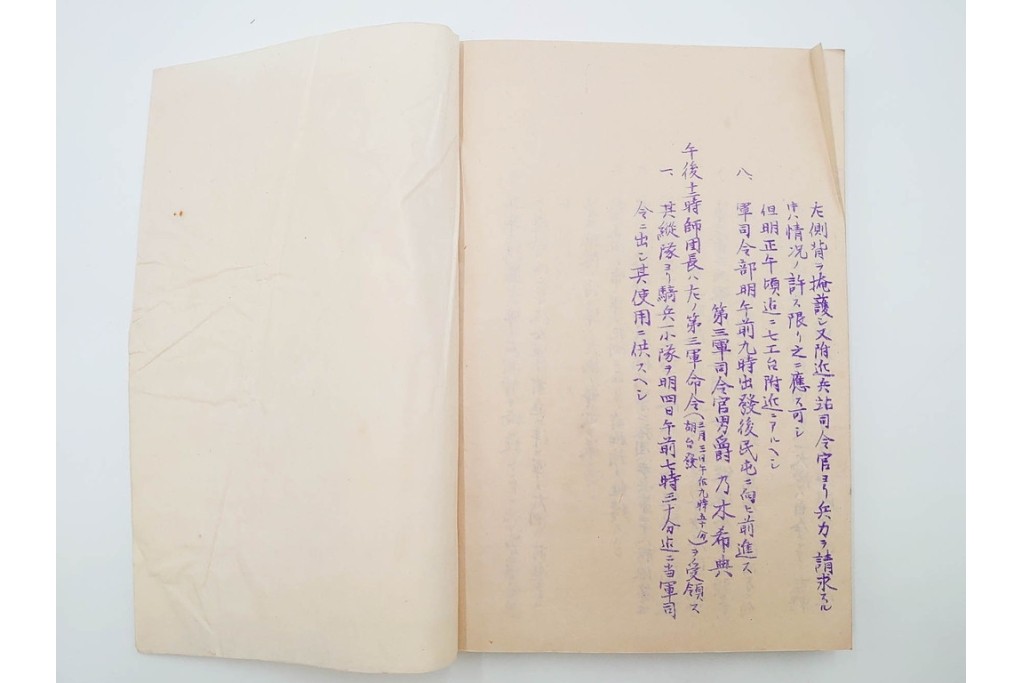 左側背ヲ掩護シ又附近兵站司令官ヨリ兵力ヲ請求スル
情況ノ許ス限リ之ニ應ス可シ
但明正午頃迄ニ七工台附近ニアルヘシ
八、軍司令部明午前九時出發後民屯ニ向ヒ前進ス
第三軍司令官男爵 乃木希典
午後十一時師団長ハ左ノ第三軍命令(三月三日午后九時五十分胡台發)ヲ受領ス
一、其縱隊ヨリ騎兵一小隊ヲ明四日午前七時三十分迄ニ当軍司
令ニ出シ其使用ニ供スヘシ